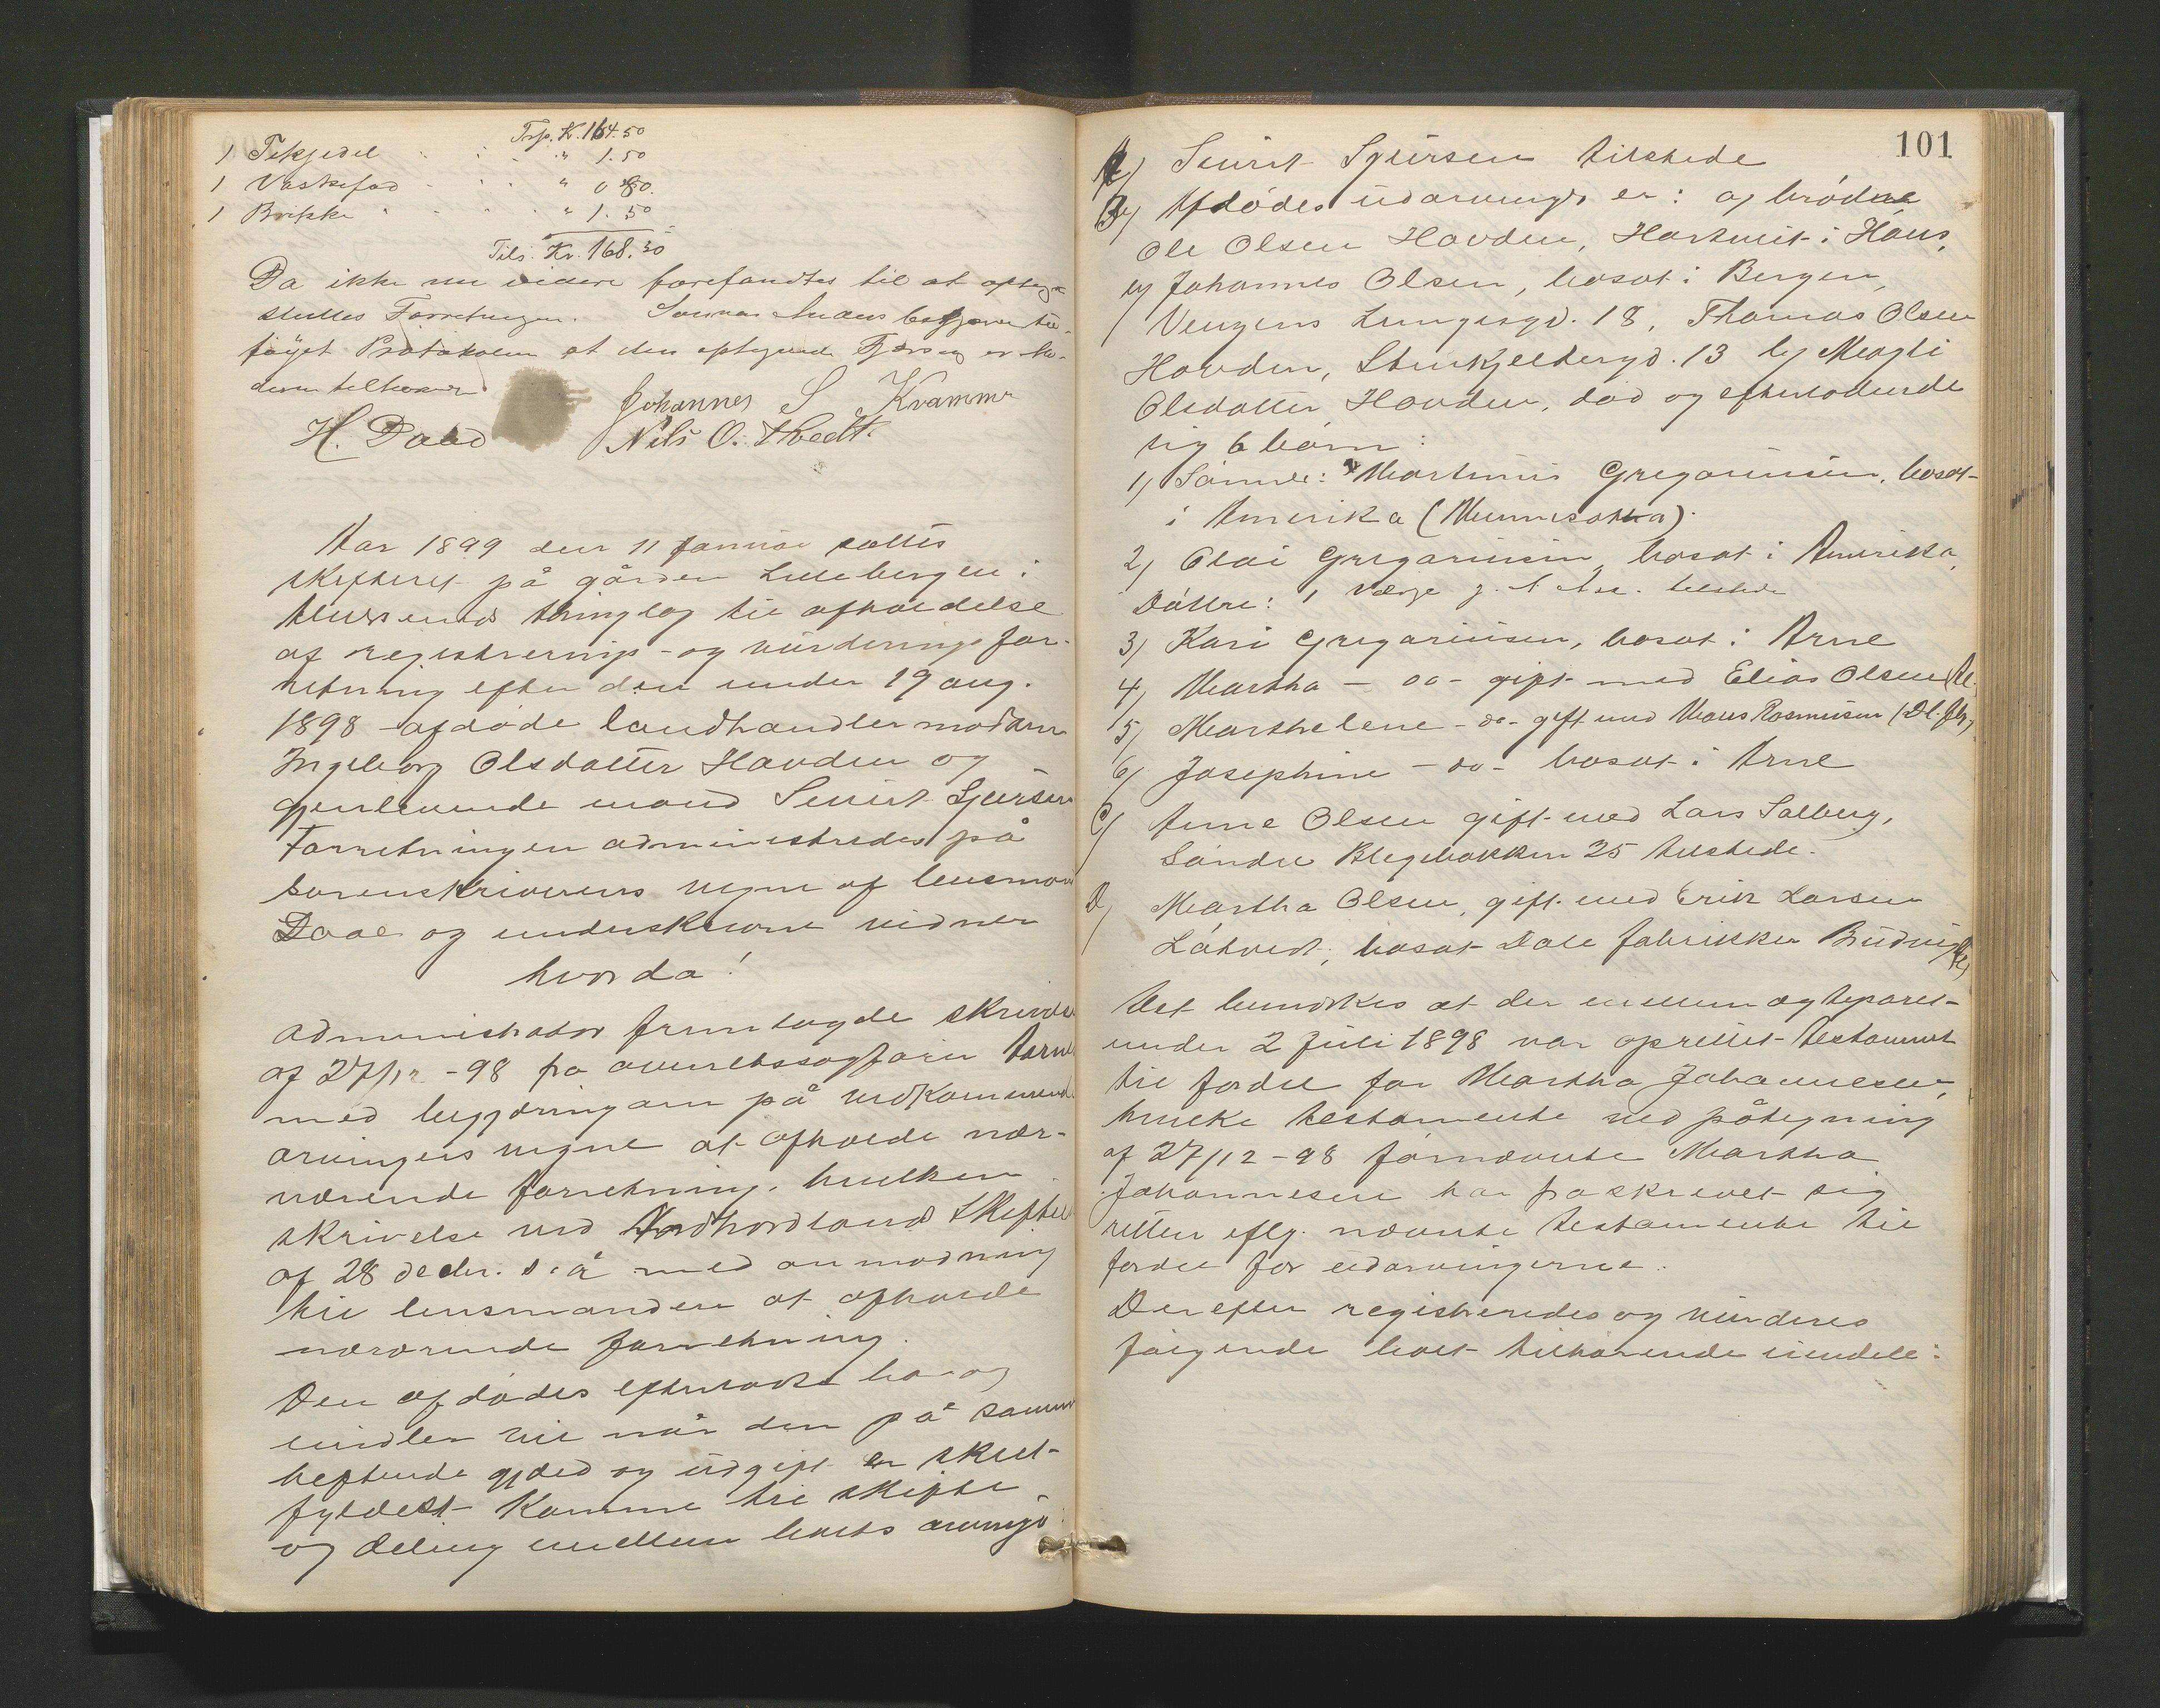 Trsp. K. 164.50
1 Tekjedel " 1.50
1 Vaskefad " 0.80.
1 Brikke " 1.50
Tils. Kr. 168.30
Da ikke mere videre forefandtes til at optegne
sluttes Forretningen.
føiet Protokolen at den optegnede er
dem tilhører
Johannes S Kvamme
H. Daae Nils O. Tvedt.
Aar 1899 den 11 januar sattes
skifteret på gården Lillebergen i
tinglag til afholdelse
af registrerings- og vurderingsfor-
retning efter den under 19 aug.
1898 afdøde landhandler madam
Ingeborg Olsdatter Havden og
gjenlevende mand Sjursen
Forretningen administredes på
sorenskriverens vegne af lensmand
Daae og underskrevne vidner
hvorda!
Administrator fremlagde skrivelse
af 27/12 -98 fra overretssagfører
med begjæring om på vedkommende
arvingers vegne at afholde nær-
værende forretning. hvilken
skrivelse ved Nordhordlands Skifteret
af 28 decbr. s. å med anmodning
til lensmanden at afholde
nærværende forretning.
Den afdødes efterladte bo og
midler vil når den på samme
heftende gjæld og udgift er skyl-
fyldest komme til skifte
og deling mellem boets arvinger
101
Sjursen tilstede
B) Afdødes udarvinger er: a) brødre
Ole Olsen Havden, Hartveit i Haus,
b) Johannes Olsen, bosat i Bergen,
Lungegd. 18, Thomas Olsen
Havden, Stenkjeldergd. 13 b) Magli
Olsdatter Havden, død og efterladende
sig 6 børn:
1) Sønner: Martinus Gregoriusen, bosat
i Amerika (Minnesotta).
2) Olai Gregoriusen, bosat i Amerika,
Døttre: 1 Værge tilstede
3) Kari Gregoriusen, bosat i Arne
4) Martha - do - gift med Elias Olsen
5) Marthelene - do - gift med Mons Rasmusen
6) Josephine - do - bosat i Arne
C) Anne Olsen gift med Lars Solberg,
Søndre Blegebakken 25 tilstede.
D) Martha Olsen, gift med Erik Larsen
bosat Dale fabrikker
Det bemærkes at der mellem ægteparet
under 2 Juli 1898 var oprettet testament
til fordel for Martha Johannesen,
hvilke testamente ved påtegning
af 27/12-98 førnævnte Martha
Johannesen har fraskrevet sig
retten eflg. nævnte testamente til
fordel for udarvingerne.
Derefter registreredes og vurderes
følgende boet tilhørende eiendele: